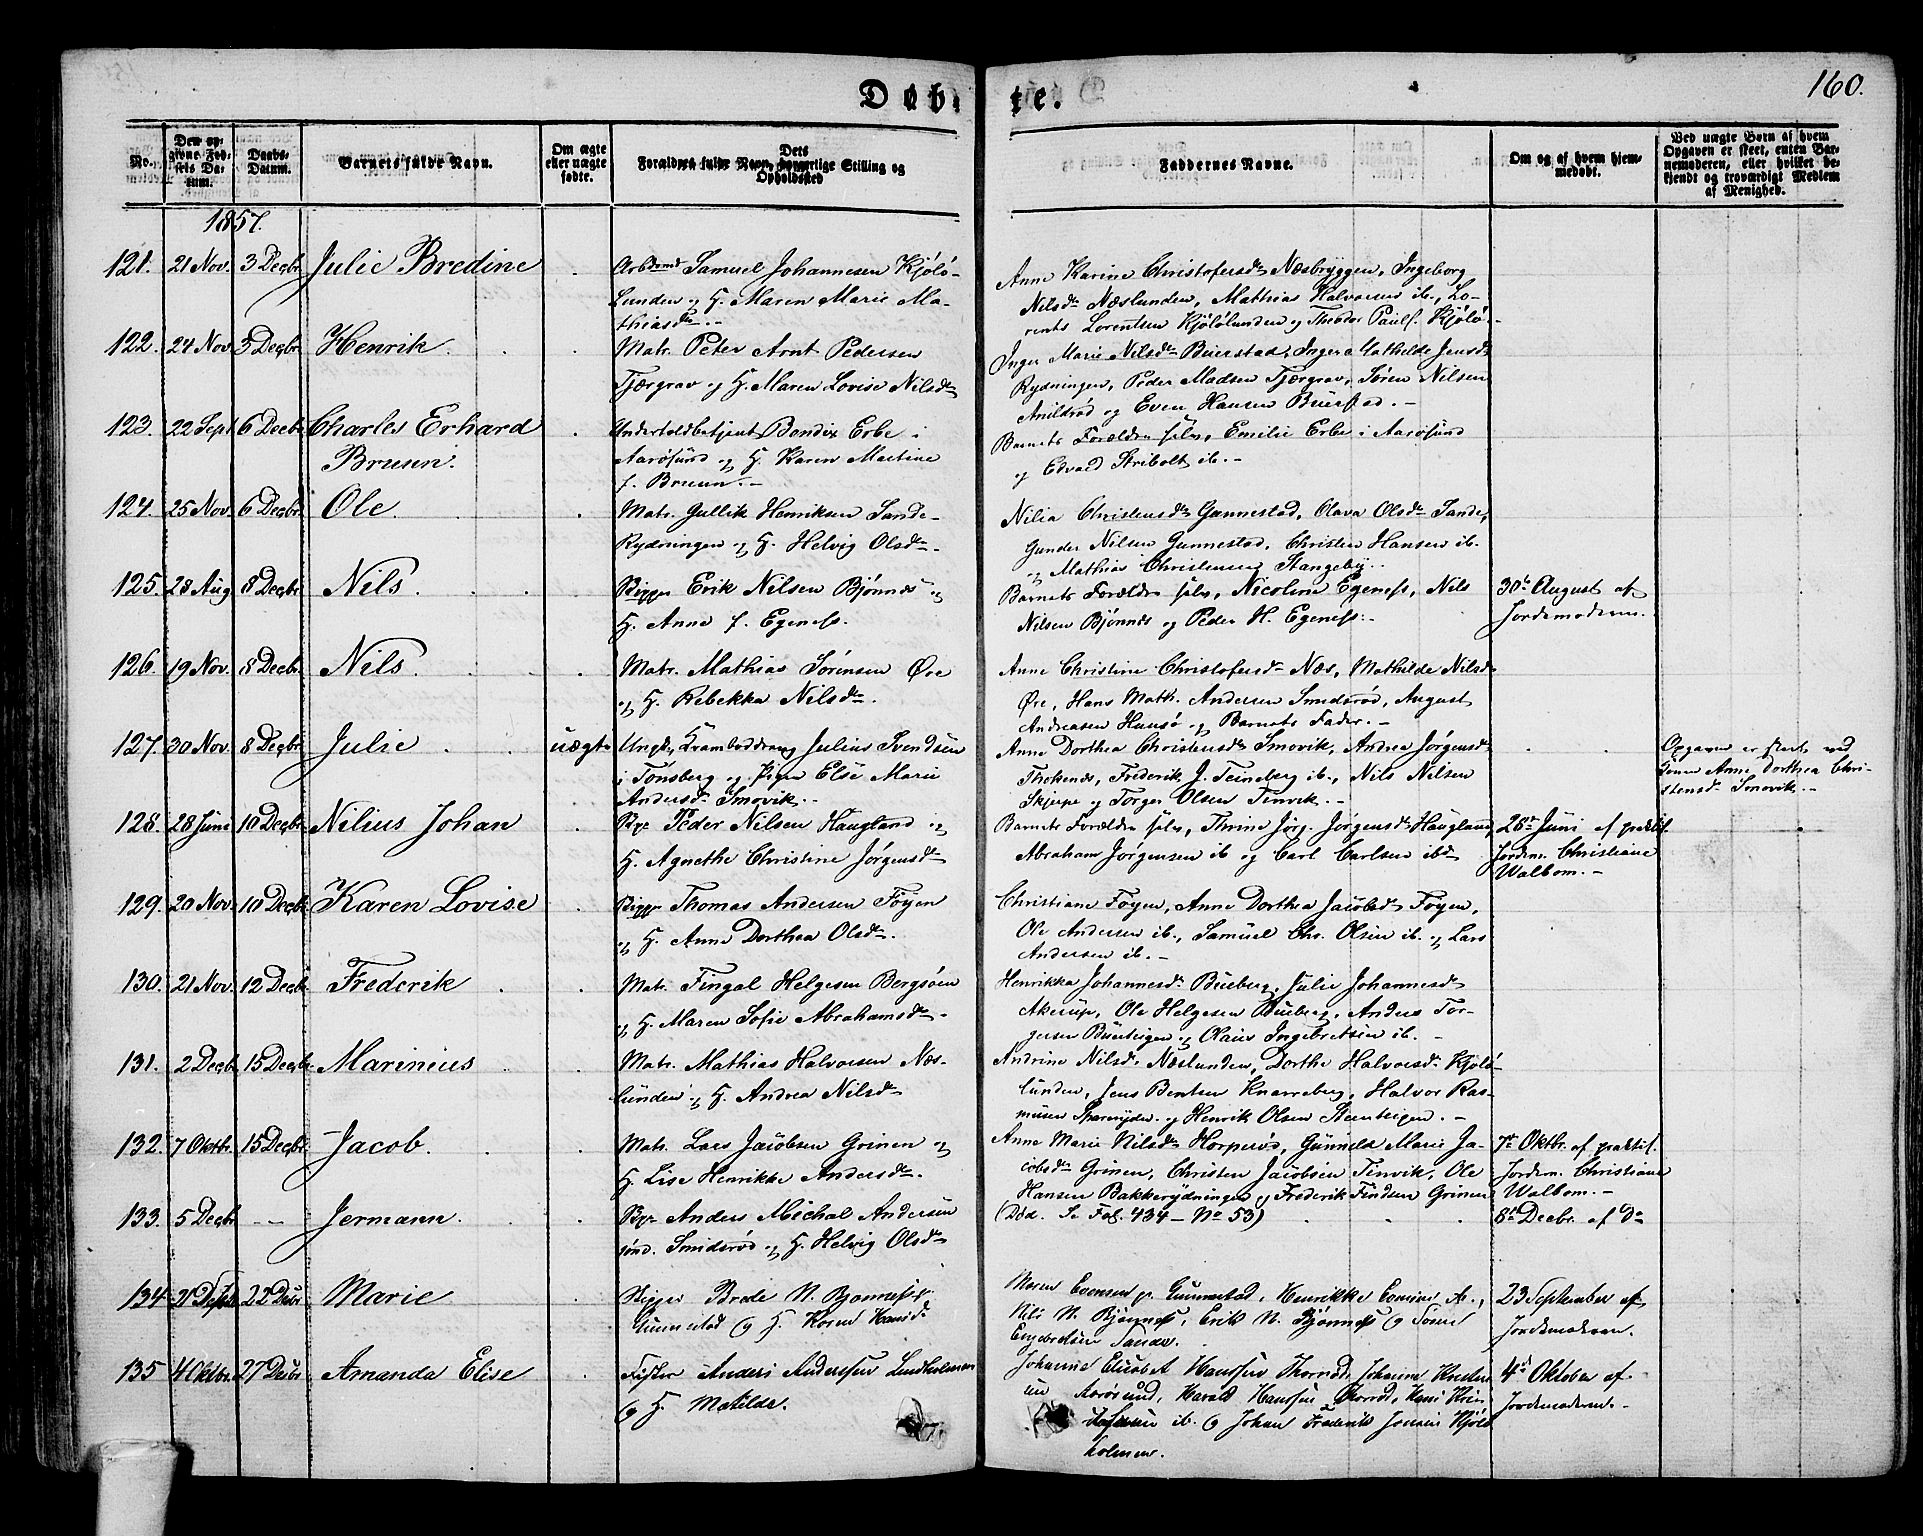 Døbte.
160.
No.
Den opgivne Fødsels Datum.
Daabs-Datum.
Barnets fulde Navn.
Om ægte eller uægte fødte.
Dets Forældres fulde Navn, borgerlige Stilling og Opholdssted
Faddernes Navne.
Om og af hvem hjemmedøbt.
Ved uægte Børn af hvem Opgaven er skeet, enten Barnemoderen, eller hvilket bekjendt og troværdigt Medlem af Menighed.
1857.
121. 21 Nov. 3 Decbr Julie Bredine
Arbmd Samuel Johannesen Kjølø-
Lunden og H. Maren Marie Ma-
thiasdr.-
Anne Karine Christofersdr Næsbryggen, Ingeborg
Nilsdr Næslunden, Mathias Halvorsen ib., Lo-
rents Lorentsen Kjølølunden og Theodor Pauls. Kjølø.
122. 24 Nov 3 Decbr Henrik
Matr. Peter Arnt Pedersen
Tjærgrav og H. Maren Lovise Nilsdr
Inger Marie Nilsdr Buerstad, Inger Mathilde Jensdr
Rydningen, Peder Madsen Tjærgrav, Søren Nilsen
Anildrød og Even Hansen Buerstad.-
123. 22 Sept 6 Decbr Charles Erhard
Bruun.
Underholdbetjent Bendix Erbe i
Aarøsund og H. Karen Martine
f. Bruun.-
Barnets Forældre selv, Emilie Erbe i Aarøsund
og Edvard Stribolt ib.-
124. 25 Nov. 6 Decbr Ole
Matr. Gullik Henriksen Sande-
Rydningen og H. Helvig Olsdr.
Nilia Christensdr Gunnestad, Olava Olsdr Sande,
Gunder Nilsen Gunnestad, Christen Hansen ib.
og Mathias Christensen Stangeby.
125. 28 Aug 8 Decbr Nils
Skipper Erik Nilsen Bjønnes og
H. Anne f. Egeness.
Barnets Forældre selv, Nicoline Egeness, Nils
Nilsen Bjønnes og Peder H. Egeness.
30te August af
Jordemoderen.
126. 19 Nov. 8 Decbr Nils
Matr. Mathias Sørensen Øre
og H. Rebekka Nilsdr.
Anne Christine Christofersdr Næs, Mathilde Nilsdr
Øre, Hans Math. Andersen Smidsrød, August
Andreasen Hunsø og Barnets Fader.-
127. 30 Nov. 8 Decbr Julie uægte
Ungk. Kramboddreng Julius Svendsen
i Tønsberg og Pigen Else Marie
Andersdr Smovik.
Anne Dorthea Christensdr Smovik, Andrea Jørgensdr
Thokenæs, Frederik J. Teineberg ib., Nils Nilsen
Skjerpe og Torger Olsen Tinvik.-
Opgaven er skeet ved
Gonen Anne Dorthea Chri-
stensdr Smovik.-
128. 28 Juni 10 Decbr Nilius Johan
Sk. Peder Nilsen Haugland og
H. Agnethe Christine Jørgensdr
Barnets Forældre selv, Thrine Jørg. Jørgensdr Haugland,
Abraham Jørgensen ib og Carl Carlsen ibd
28de Juni af praktis.
Jordem. Christiane
Walbom.-
129. 20 Nov. 10 Decbr Karen Lovise
Skipp. Thomas Andersen Føyen
og H. Anne Dorthea Olsdr.
Christiane Føyen, Anne Dorthea Jacobsdr Føyen,
Ole Andersen ib., Samuel Chr. Olsen ib. og Lars
Andersen ib.-
130. 21 Nov. 12 Decbr Frederik
Matr. Fingal Helgesen Bergsøen
og H. Maren Sofie Abrahamsdr.
Henrikka Johannesdr Bueberg, Julie Johannesdr
Akerup, Ole Helgesen Bueberg, Anders Tor-
gersen Buerteigen og Olaus Ingebretsen ib.-
131. 2 Decbr 15 Decbr Marinius
Matr. Mathias Halvorsen Næs-
lunden og H. Andrea Nilsdr
Andrine Nilsdr Næslunden, Dorthe Halvorsdr Kjølø-
lunden, Jens Bentsen Knarreberg, Halvor Ras-
musen og Henrik Olsen Stenteigen.-
132. 7 Oktbr. 15 Decbr Jacob.
Matr. Lars Jacobsen Grinen og
H. Lise Henrikke Andersdr.
Anne Marie Nilsdr Horperød, Gunnild Marie Ja-
cobsdr Grinen, Christen Jacobsen Tinvik, Ole
Hansen Bakkerydningen og Frederik Findsen Grinen
7de Oktbr. af praktis.
Jordem. Christiane
Walbom.-
133. 5 Decbr -- Jermann.
Anders Michal Andersen
Smidsrød og H. Helvig Olsdr
(Død. Se Fol. 434 - No 53)
8de Decbr. af Do
134 22 Decbr Marie
Skipper Brede N. Bjønness
Gunnestad og H. Karen Hansdr
Maren Evensen p. Gunnestad, Henrikke
Nils N. Bjønness, Erik N. Bjønness og
Engebretsen Sande.
23 September af
Jordemoderen.
135 4 Oktbr. 27 Decbr Amanda Elise
Fisker Anders Andersen Lindholmen
og H. Matilde.
Johanne Elisabet Hanssen Thorrød, Johanne
Aarøsund, Harald Hanssen Thorrød, Hans
ib. og Johan Frederik Jensen Kjøl
holmen.
4de Oktober af
Jordemoderen.-